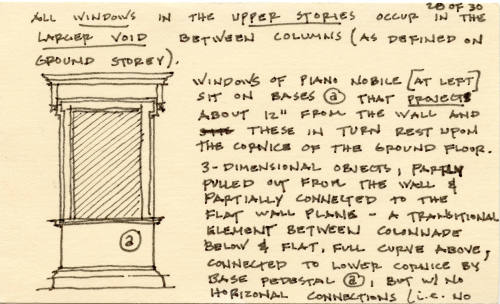 28 OF 30
ALL WINDOWS IN THE UPPER STORIES OCCUR IN THE
LARGER VOID BETWEEN COLUMNS (AS DEFINED ON
GROUND STOREY).
WINDOWS OF PIANO NOBILE [AT LEFT]
SIT ON BASES ⓐ THAT PROJECTS
ABOUT 12" FROM THE WALL AND
THESE IN TURN REST UPON
THE CORNICE OF THE GROUND FLOOR.
3-DIMENSIONAL OBJECTS, PARTLY
PULLED OUT FROM THE WALL &
PARTIALLY CONNECTED TO THE
FLAT WALL PLANE - A TRANSITIONAL
ELEMENT BETWEEN COLONNADE
BELOW & FLAT, FULL CURVE ABOVE,
CONNECTED TO LOWER CORNICE BY
BASE PEDESTAL ⓐ, BUT W/ NO
HORIZONAL CONNECTIONS (i.e. NO
ⓐ